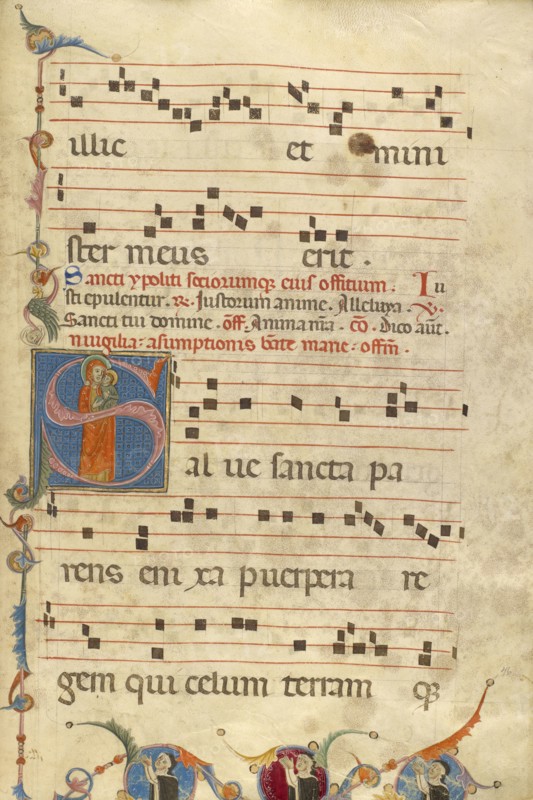 illic et mini
ster meus erit .
Sancti ypoliti sociorumqꝫ eius offitium . Iu
sti epulentur . ꝶ . Justorum anime . Alleluya . ℣ .
Sancti tui domine . off̄ . Anima nr̄a . cō . Dico aūt .
In uigilia : asumptionis bāte marie : offm̄ .
Sal ue sancta pa
rens eni xa puerpera re
gem qui celum terram qꝫ